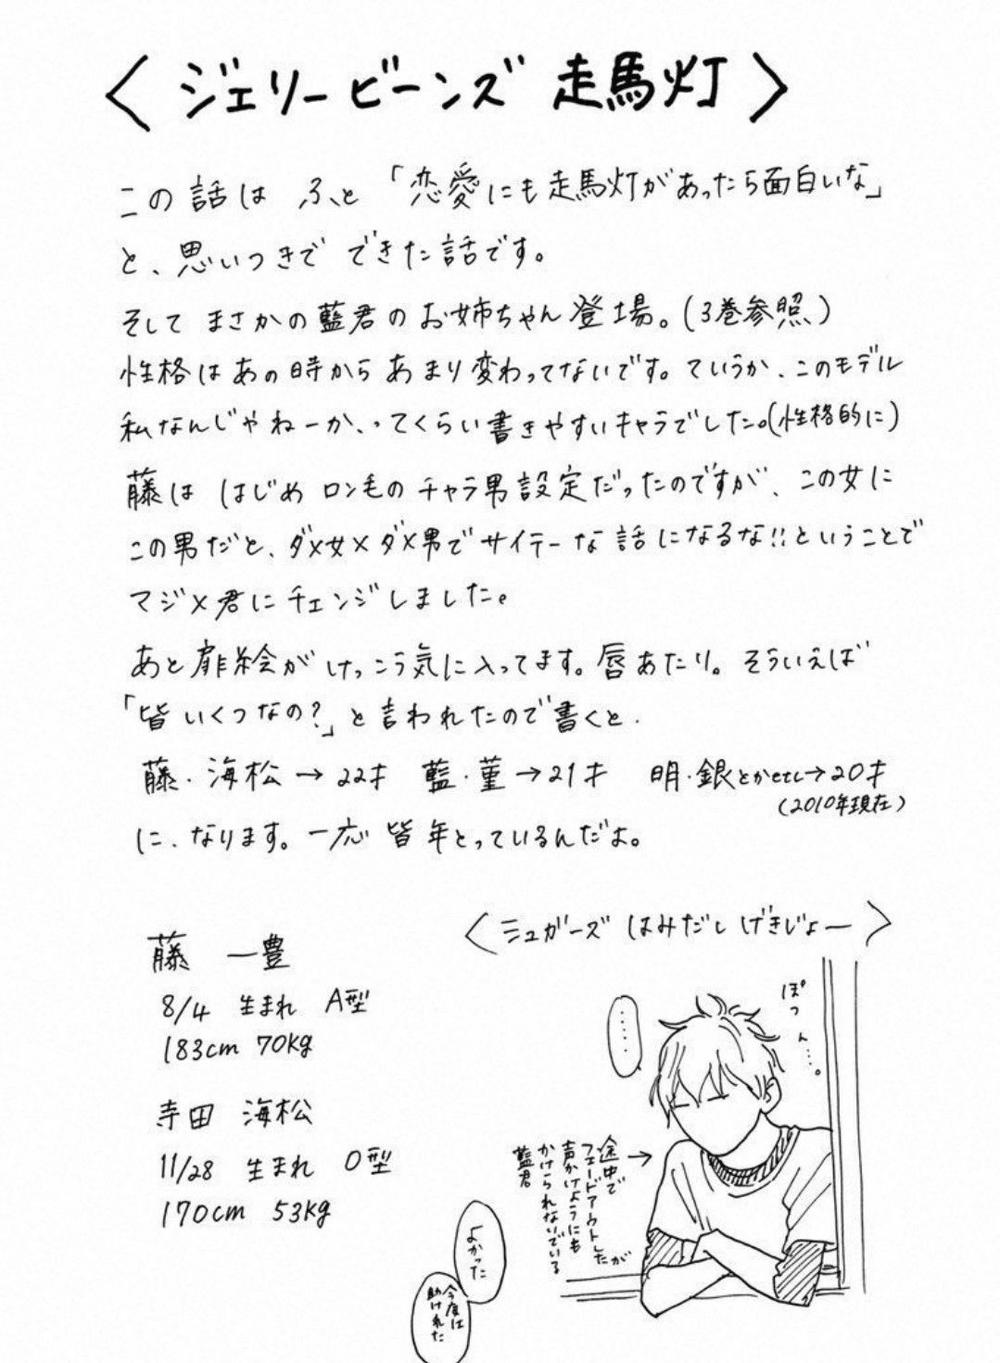 〈ジェリービーンズ 走馬灯〉
この話は ふと「恋愛にも走馬灯があったら面白いな」
と、思いつきで できた話です。
そして まさかの藍君の お姉ちゃん登場。(3巻参照)
性格は あの時から あまり変わってないです。ていうか、このモデル
私なんじゃねーか、ってくらい書きやすいキャラでした。(性格的に)
藤は はじめ ロン毛の チャラ男設定だったのですが、この女に
この男だと、ダメ女×ダメ男で サイテーな話になるな!!ということで
マジメ君にチェンジしました。
あと扉絵が けっこう気に入ってます。唇あたり。そういえば
「皆いくつなの?」と言われたので書くと.
藤・海松→22才 藍・菫→21才 明・銀とかetc→20才
(2010年現在)
に、なります。一応 皆 年とっているんだよ。
藤 一豊
8/4 生まれ A型
183cm 70kg
寺田 海松
11/28 生まれ O型
170cm 53kg
〈シュガーズ はみだし げきじょー〉
ぽつん…。
……
途中で
フェードアウトしたが
声かけようにも
かけられないでいる
藍君
よかった
今度は
助けれた